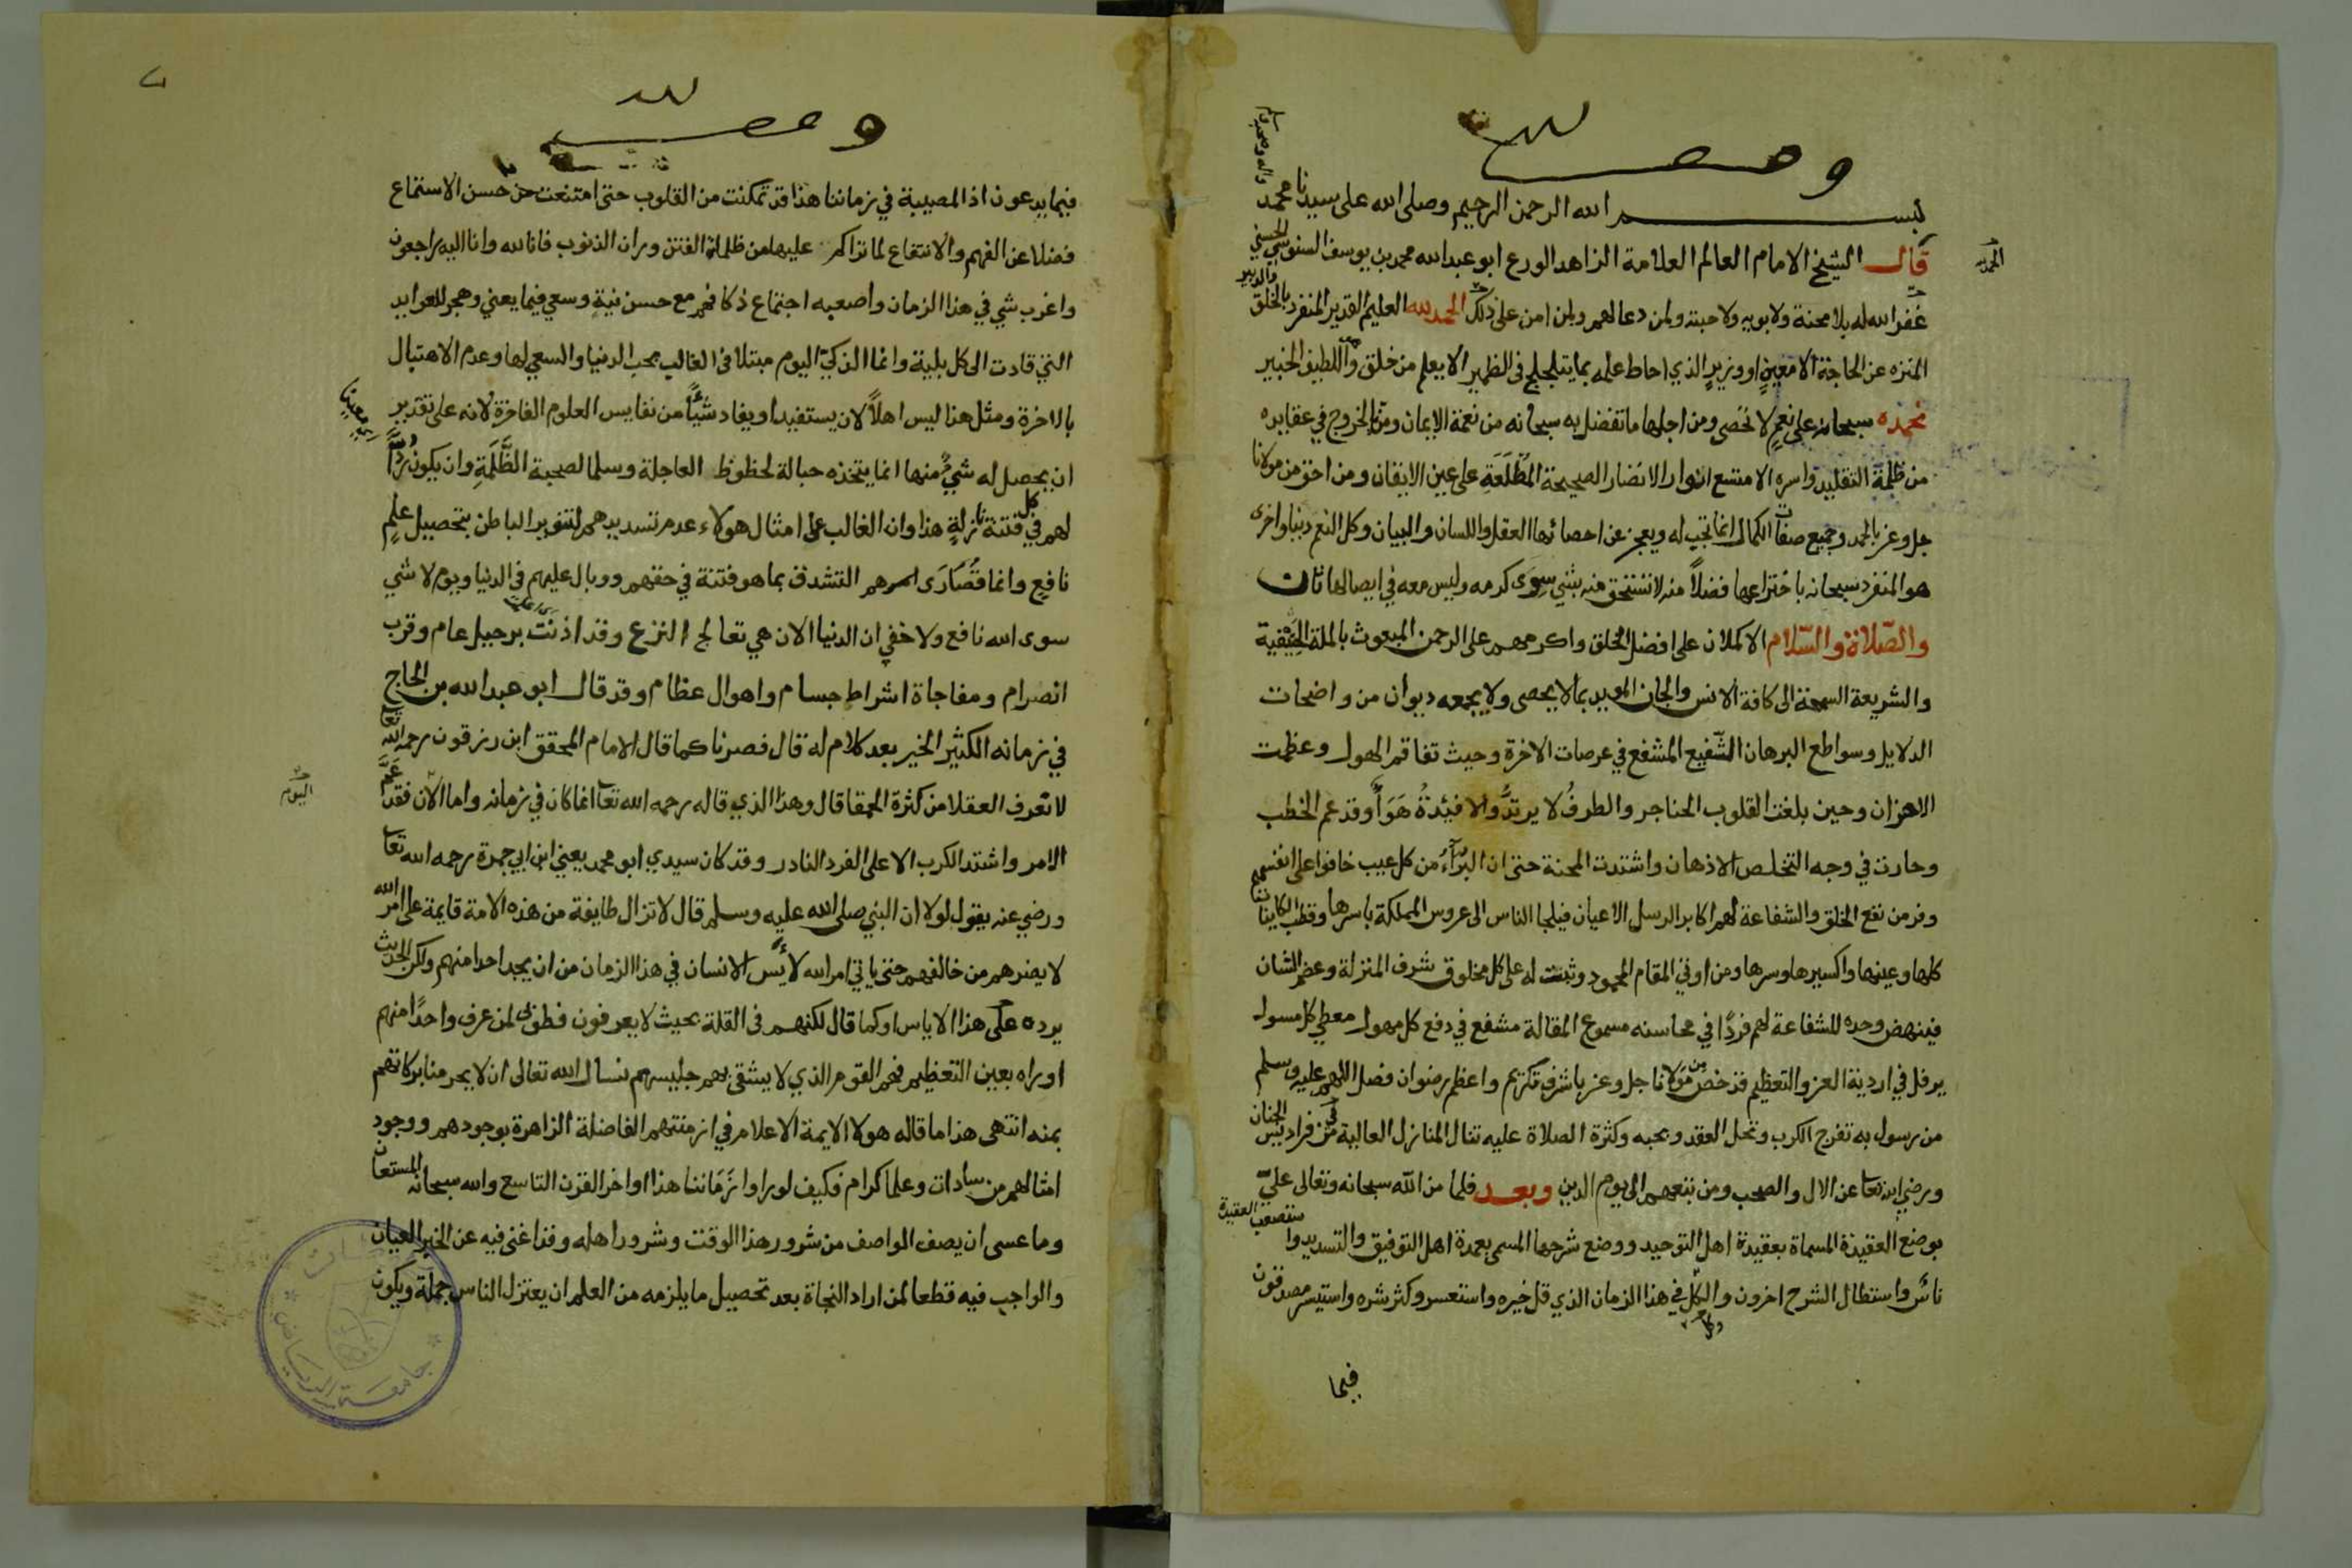 وقف لله
بسم الله الرحمن الرحيم وصلى الله على سيدنا محمد واله وصحبه وسلم
قال الشيخ الامام العالم العلامة الزاهد الورع ابو عبد الله محمد بن يوسف السنوسي الحسني
غفر الله له بلا محنة ولابويه ولاحبته ولمن دعا لهم ولمن امن على ذلك الحمد لله العليم القدير المنفرد بالخلق والتدبير
المنزه عن الحاجة الا معين او وزير الذي احاط علمه بما يتلجلج في الظهير الا يعلم من خلق وهو اللطيف الخبير
نحمده سبحانه على نعم لا تحصى ومن اجلها ما تفضل به سبحانه من نعمة الايمان ومن الخروج في عقايده
من ظلمة التقليد واسره الا متسع انوار الانضار الصحيحة المطلعة على عين الايقان ومن احق من مولانا
جل وعز بالحمد وجميع صفات الكمال انما تجب له ويعجز عن احصائها العقل واللسان والبيان وكل النعم دنيا واخرى
هو المنفرد سبحانه باختراعها فضلاً منه لا نستحق منه بشي سوى كرمه وليس معه في ايصالها ثان
والصلاة والسلام الاكملان على افضل الخلق واكرمهم على الرحمن المبعوث بالملة الحنيفية
والشريعة السمحة الى كافة الانس والجان المويد بما لا يحصى ولا يجمعه ديوان من واضحات
الدلايل وسواطع البرهان الشفيع المشفع في عرصات الاخرة وحيث تفاقم الهول وعظمت
الاحزان وحين بلغت القلوب الحناجر والطرف لا يرتد والافئدة هواً وقد عم الخطب
وحارت في وجه التخلص الاذهان واشتدت المحنة حتى ان البرآء من كل عيب خافوا على انفسهم
وفر من نفع الخلق والشفاعة لهم اكابر الرسل الاعيان فيلجا الناس الى عروس المملكة باسرها وقطب الكاينات
كلها وعينها واكسيرها وسرها ومن اوتي المقام المحمود وثبت له على كل مخلوق شرف المنزلة وعضم الشان
فينهض وحده للشفاعة لهم فردًا في محاسنه مسموع المقالة مشفع في دفع كل مهول معطي كل مسول
يرفل في اردية العز والتعظيم قد خص من مولانا جل وعز باشرف تكريم واعظم رضوان فصل اللهم عليه وسلم
من رسول به تفرج الكرب وتحل العقد وبحبه وكثرة الصلاة عليه تنال المنازل العالية في فراديس الجنان
ورضي الله تعا عن الال والصحب ومن تبعهم الى يوم الدين وبعد فلما من الله سبحانه وتعالى عليّ
بوضع العقيدة المسماة بعقيدة اهل التوحيد ووضع شرحها المسمى بعمدة اهل التوفيق والتسديد واستصعب العقيدة
ناس واستطال الشرح اخرون والكل في هذا الزمان الذي قل خيره واستعسر وكثر شره واستيسر مصدقون
فيما
وقف لله
فيما يدعون اذ المصيبة في زماننا هذا قد تمكنت من القلوب حتى امتنعت من حسن الاستماع
فضلا عن الفهم والانتفاع لما تراكم عليها من ظلمة الفتن وران الذنوب فانا لله وانا اليه راجعون
واغرب شي في هذا الزمان واصعبه اجتماع ذكا فهم مع حسن نية وسعي فيما يعني وهجر للعوايد
التي قادت الى كل بلية وانما الذكيّ اليوم مبتلا في الغالب بحب الدنيا والسعي لها وعدم الاهتبال
بالاخرة ومثل هذا ليس اهلاً لان يستفيد او يفاد شيًا من نفايس العلوم الفاخرة لانه على تقدير
ان يحصل له شيٌ منها انما يتخذه حبالة لحظوظ العاجلة وسلما لصحبة الظَّلَمَةِ وان يكون
لهم في كل فتنة نازلةٍ هذا وان الغالب على امثال هولاء عدم تسديدهم لتنوير الباطن بتحصيل علمٍ
نافع وانما قصارى امرهم التشدق بما هو فتنة في حقهم ووبال عليهم في الدنيا ويوم لا شي
سوى الله نافع ولا خفي ان الدنيا الان هي تعالج النزع وقد اذنت برحيل عام وقرب
انصرام ومفاجاة اشراط جسام واهوال عظام وقد قال ابو عبد الله بن الحاج
في زمانه الكثير الخير بعد كلام له قال فصرنا كما قال الامام المحقق ابن رزقون رحمه الله تعا
لا تعرف العقلا من كثرة الحمقا قال وهذا الذي قاله رحمه الله تعا انما كان في زمانه واما الآن فقد عمّ
اليوم
الامر واشتد الكرب الا على الفرد النادر وقد كان سيدي ابو محمد يعني ابن ابي جمرة رحمه الله تعا
ورضي عنه يقول لولا ان النبي صلى الله عليه وسلم قال لا تزال طايفة من هذه الامة قايمة على امر الله
لا يضرهم من خالفهم حتى ياتي امر الله لأيس الانسان في هذا الزمان من ان يجد احدا منهم ولكن الحديث
يرده على هذا الاياس او كما قال لكنهم في القلة بحيث لا يعرفون فطوبى لمن عرف واحدًا منهم
او راه بعين التعظيم فهم القوم الذي لا يشقى بهم جليسهم نسال الله تعالى ان لا يحرمنا بركاتهم
بمنه انتهى هذا ما قاله هولا الايمة الاعلام في ازمنتهم الفاضلة الزاهرة بوجودهم ووجود
امثالهم من سادات وعلما كرام فكيف لو راوا زَمَاننا هذا اواخر القرن التاسع والله سبحانه المستعان
وما عسى ان يصف الواصف من شرور هذا الوقت وشرور اهله وقد اغنى فيه عن الخبر العيان
والواجب فيه قطعا لمن اراد النجاة بعد تحصيل ما يلزمه من العلم ان يعتزل الناس جملة ويكون
جامعة الرياض